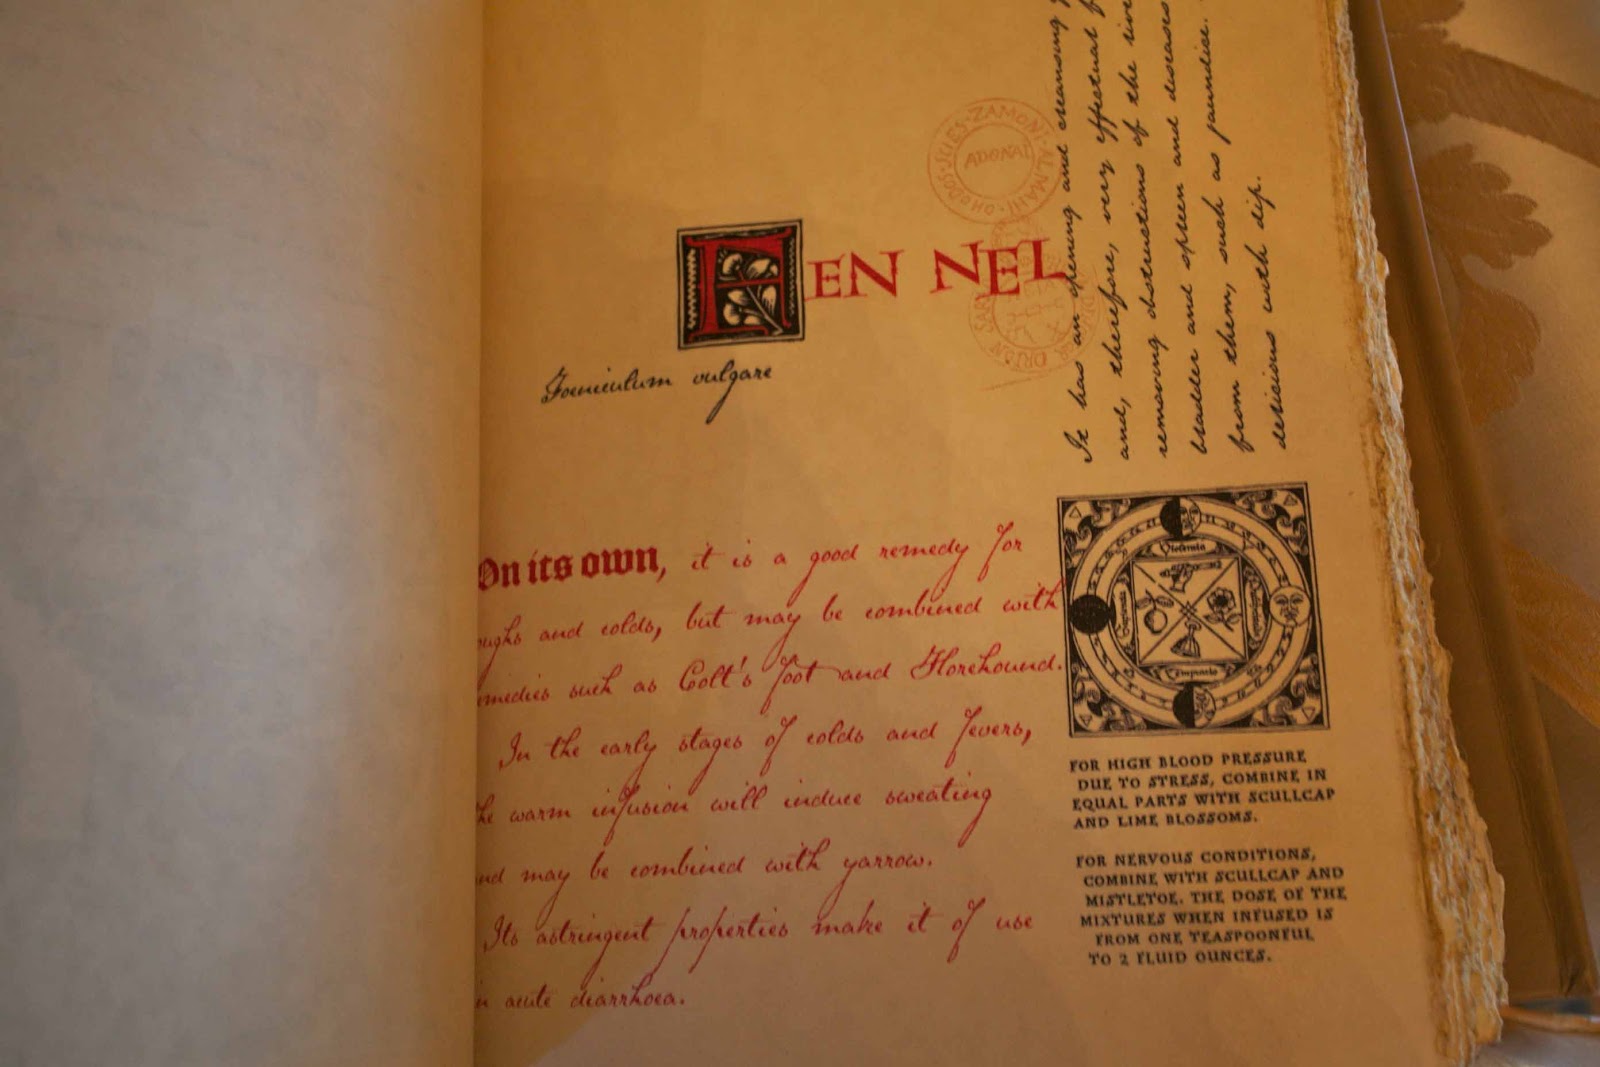 FENNEL
Foeniculum vulgare
On its own, it is a good remedy for
oughs and colds, but may be combined with
emedies such as Colt's foot and Horehound.
In the early stages of colds and fevers,
he warm infusion will induce sweating
nd may be combined with yarrow.
Its astringent properties make it of use
n acute diarrhoea.
It has an opening and cleansing
and, therefore, very effectual
removing obstructions of the
bladder and spleen and diseases
from them, such as jaundice.
delicious with dip.
ADONAI
ZAMONI
FOR HIGH BLOOD PRESSURE
DUE TO STRESS, COMBINE IN
EQUAL PARTS WITH SCULLCAP
AND LIME BLOSSOMS.
FOR NERVOUS CONDITIONS,
COMBINE WITH SCULLCAP AND
MISTLETOE. THE DOSE OF THE
MIXTURES WHEN INFUSED IS
FROM ONE TEASPOONFUL
TO 2 FLUID OUNCES.